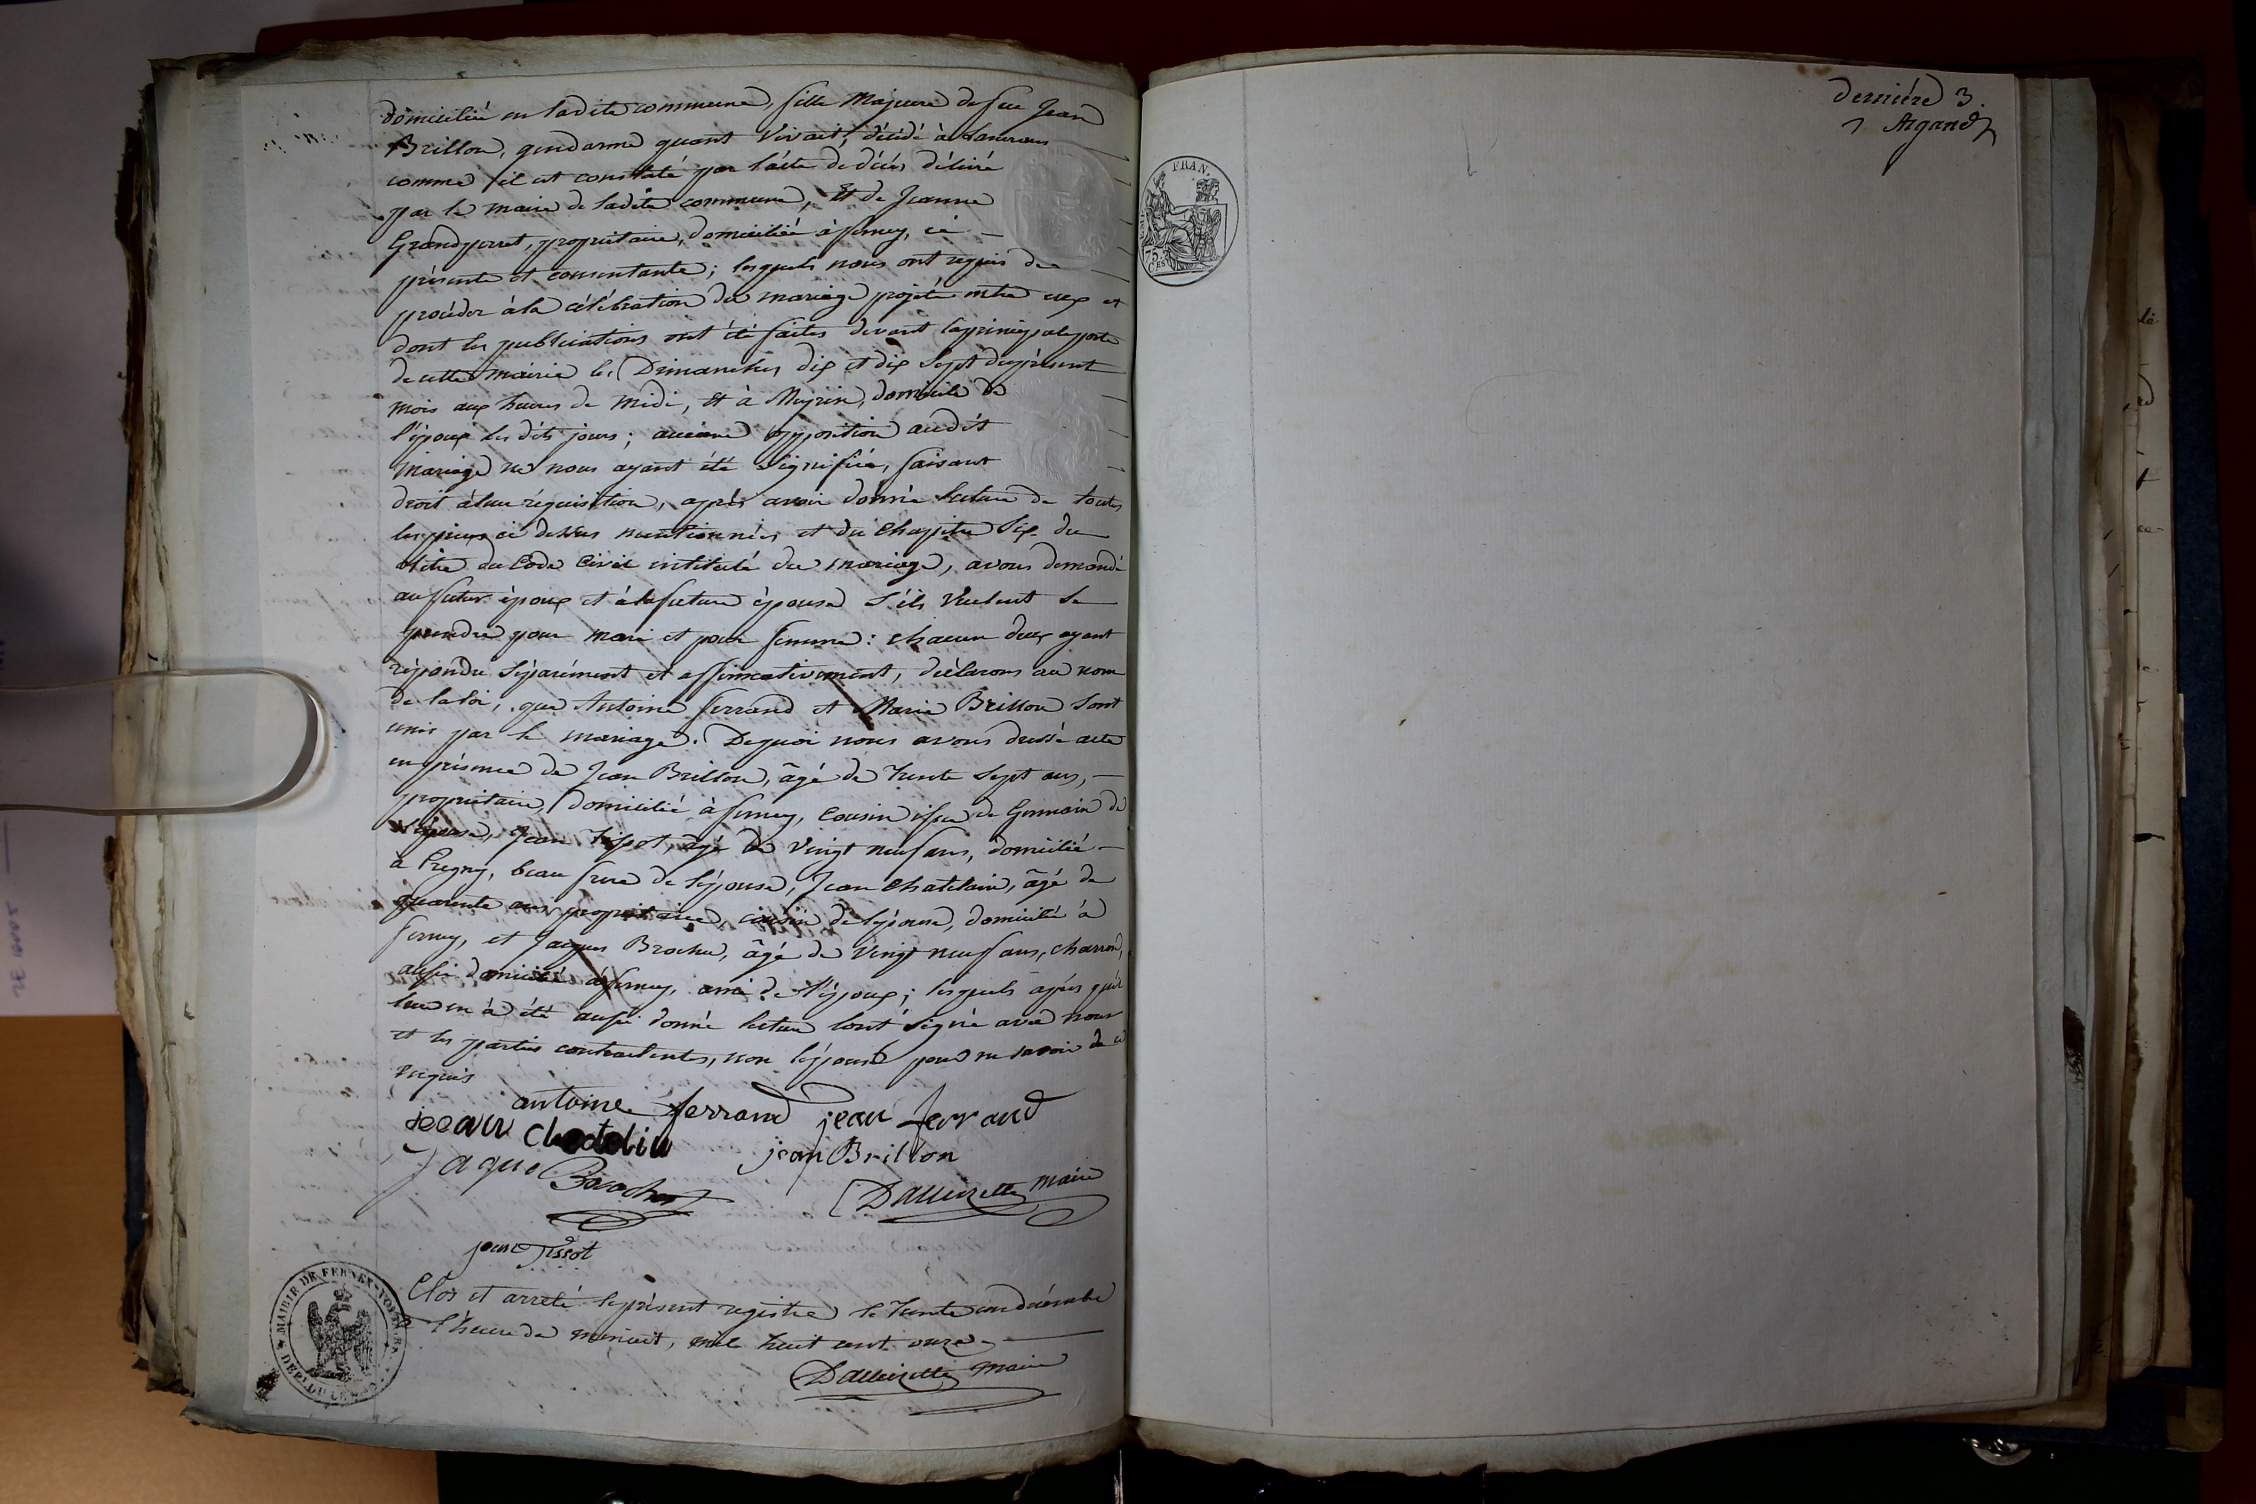 domiciliée en ladite commune, fille Majeure de feu Jean
Brillon, gendarme quant vivait, décédé à
comme il est constaté par l'acte de décès délivré
par le maire de ladite commune, Et de Jeanne
Grandperret, propriétaire, domiciliée à ferney, ici
présente et consentante; lesquels nous ont requis de
procéder à la célébration du mariage projeté entre eux et
dont les publications ont été faites devant la principale porte
de cette mairie les Dimanches dix et dix sept du présent
mois aux heures de midi, Et à Meyrin, domicile de
l'époux les dits jours; aucune opposition audit
Mariage ne nous ayant été signifiée, faisant
droit à leur réquisition, après avoir donné lecture de toutes
les pièces ci dessus mentionnées et du chapitre six du
titre du Code Civil intitulé du mariage, avons demandé
au futur époux et à la future épouse s'ils veulent se
prendre pour mari et pour femme: chacun d'eux ayant
répondu séparément et affirmativement, déclarons au nom
de la loi, que Antoine ferrand et Marie Brillon sont
unis par le mariage. De quoi nous avons dressé acte
en présence de Jean Brillon, âgé de trente sept ans,
propriétaire, domicilié à ferney, cousin issu de Germain de
l'épouse, Jean Tissot, âgé de vingt neuf ans, domicilié
à Pregny, beau frere de l'épouse, Jean Chatelain, âgé de
quarante ans propriétaire, cousin de l'épouse, domicilié à
ferney, et Jacques Brochu, âgé de vingt neuf ans, charron,
aussi domicilié à ferney, ami de l'époux; lesquels après qu'il
leur en à été aussi donné lecture l'ont signé avec nous
et les parties contractantes, non l'épouse pour ne savoir de ce
requis
antoine ferrand jean ferrand
jeean chatelin
jean Brillon
Jaque Brochu
Dalloizette Maire
jean Tissot
Clos et arreté le présent registre le trente un décembre
à l'heure de minuit, mil huit cent onze
Dalloizette maire
MAIRIE DE FERNEY-VOLTAIRE
DEPT DU LEMAN
derniére 3.
Argand
FRAN.
75 CES